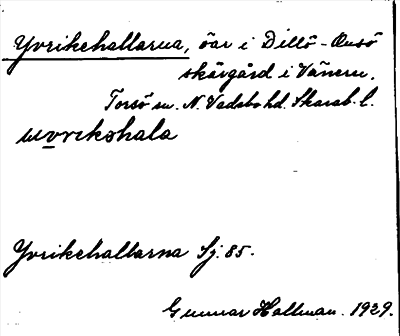 Yvrikehallarna, öar i Dillö-Onsö
skärgård i Vänern.
Torsö sn. N. Vadsbo hd. Skarab. l.
uvrikshala
Yvrikehallarna Sj. 85.
Gunnar Hallman. 1929.